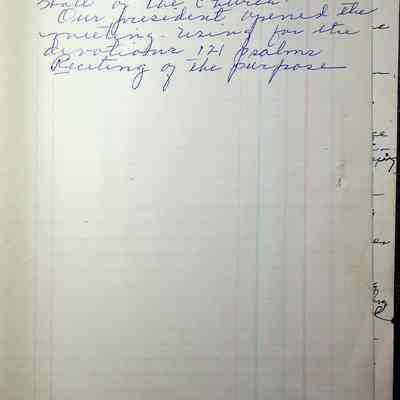 Hall of the Church.
Our president opened the
meeting - using for the
devotions 121 psalms
Reciting of the purpose